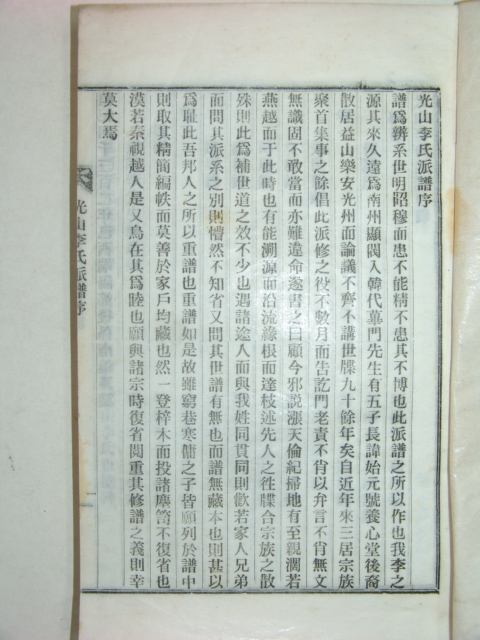 光山李氏派譜序
譜爲辨系世明昭穆而患不能精不患其不博也此派譜之所以作也我李之
源其來久遠爲南州顯閥入韓代墓門先生有五子長諱始元號養心堂後裔
散居益山樂安光州而論議不齊不講世牒九十餘年矣自近年來三居宗族
聚首集事之餘倡此派修之役不數月而告訖門老責不肖以弁言不肖無文
無識固不敢當而亦難違命遂書之曰顧今邪說漲天倫紀掃地有至親濶若
燕越而于此時也有能溯源而沿流緣根而達枝述先人之徃牒合宗族之散
殊則此爲補世道之效不少也遇諸途人而與我姓同貫同則歡若家人兄弟
而問其派系之別則懵然不知省又問其世譜有無也而譜無藏本也則甚以
爲耻此吾邦人之所以重譜也重譜如是故雖窮巷寒傭之子皆願列於譜中
則取其精簡編帙而莫善於家戶均藏也然一登梓木而投諸塵笥不復省也
漠若秦視越人是又烏在其爲睦也願與諸宗時復省閱重其修譜之義則幸
莫大焉
光山李氏派譜序
一